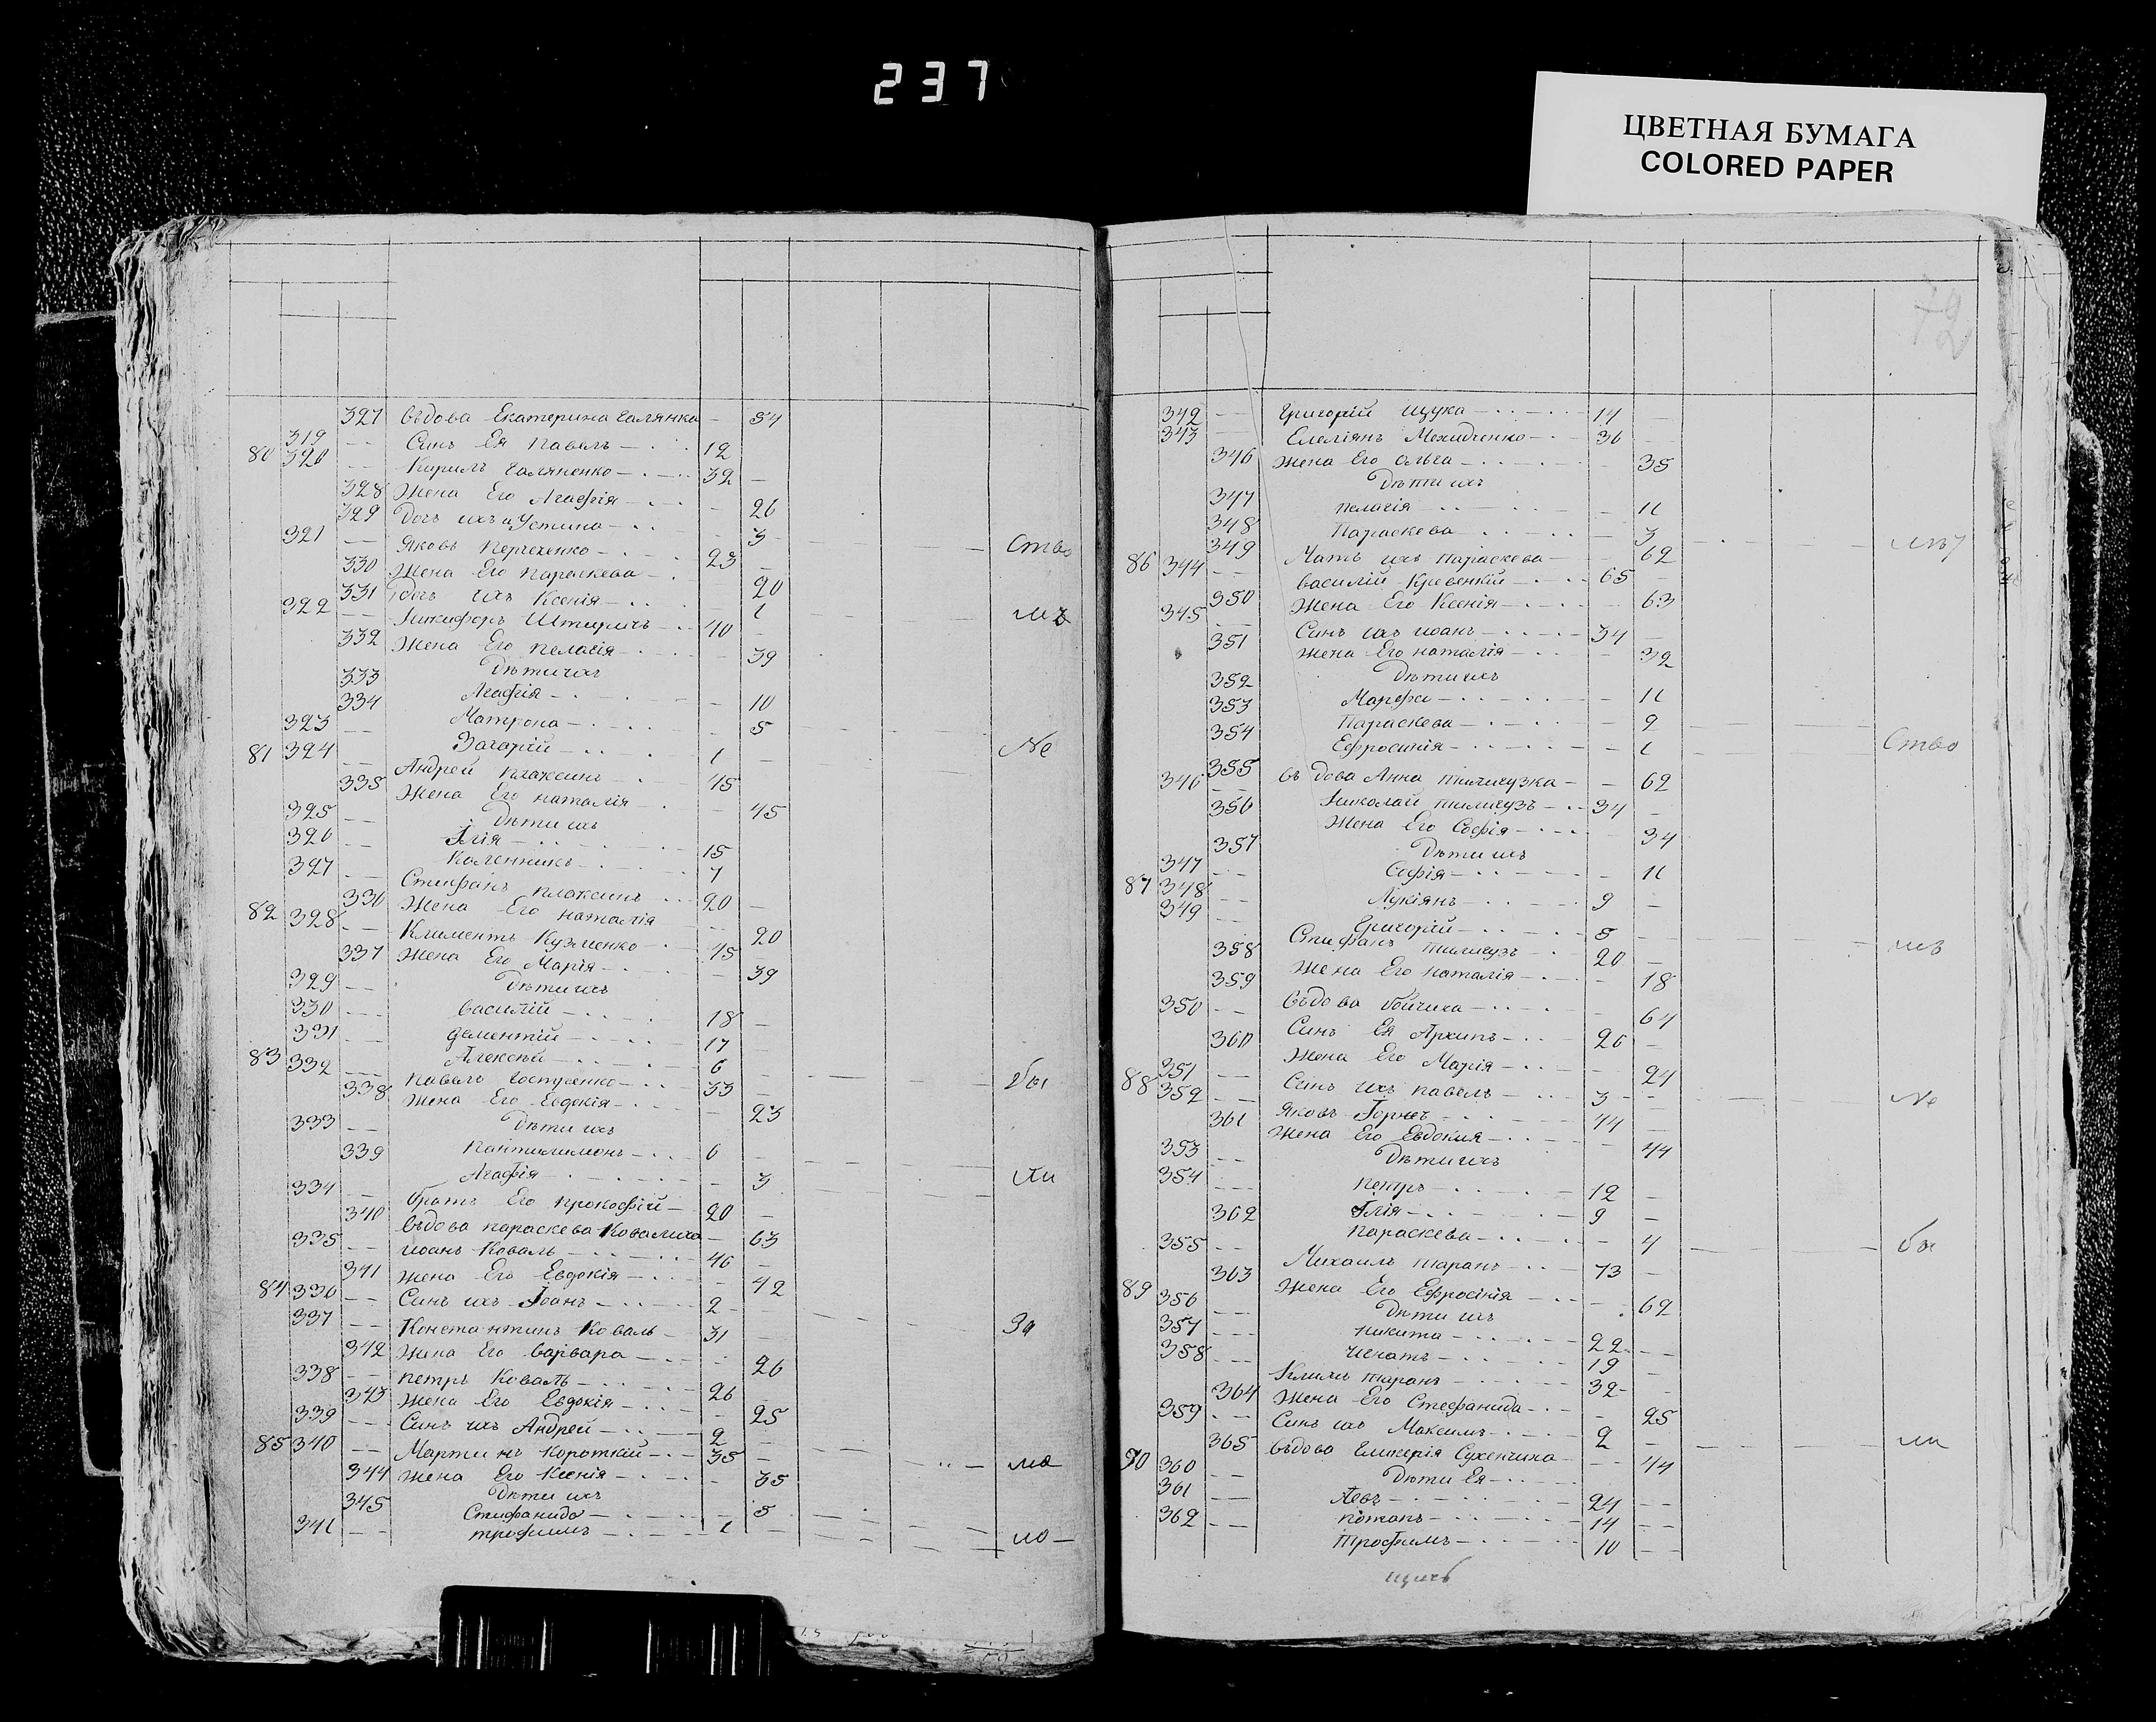 237
ЦВЕТНАЯ БУМАГА
COLORED PAPER
327 вѣдова Екатерина Галянка 54
319 Синъ Ея павелъ 12
80 320 Кирилъ Галяненко 32
328 Жена Его Агафія 26
329 Дочь ихъ Устина 3
321 Яковъ 23 Ство
330 Жена Его параскева 20
331 Дочь ихъ Ксенія 1
322 Никифоръ 40
332 Жена Его пелагія 39
Дѣти ихъ
333 Агафія 10
334 Матрона 5
323 Захарій 1 Не
81 324 Андрей плаксинъ 45
335 Жена Его наталія 45
Дѣти ихъ
325 Ілія 15
326 Каленникъ 7
327 Стефанъ плаксинъ 20
336 Жена Его наталія 20
82 328 Климентъ Кузменко 45
337 Жена Его Марія 39
Дѣти ихъ
329 василій 18
330 дементій 17
331 Алексѣй 6
83 332 павелъ 33 бы
338 Жена Его Евдокія 23
Дѣти ихъ
333 пантилимонъ 6
339 Агафія 3 ли
334 братъ Его прокофій 20
340 вѣдова параскева Ковалиха 63
335 иоанъ Коваль 46
341 жена Его Евдокія 42
84 336 Синъ ихъ Іоанъ 2
337 Константинъ Коваль 31 За
342 Жена Его варвара 26
338 петръ Коваль 26
343 Жена Его Евдокія 25
339 Синъ ихъ Андрей 2
85 340 Мартинъ короткій 35
344 Жена Его Ксенія 35
Дѣти ихъ
345 Стифанида 5
341 трофимъ 1
72
342 Григорій щука 14
343 Емеліянъ 36
346 Жена Его ольга 35
Дѣти ихъ
347 пелагія 11
348 Параскева 3
349 Мать ихъ параскева 62
86 344 василій Кревенкій 65
350 Жена Его Ксенія 63
345 Синъ ихъ иоанъ 34
351 жена Его наталія 32
Дѣти ихъ
352 Марфа 11
353 Параскева 9
354 Ефросинія 1 Ство
355 вѣдова Анна 62
346 Николай 34
356 Жена Его Софія 34
Дѣти ихъ
357 Софія 11
347 Лукіянъ 9
87 348 Григорій 5
349 Стифанъ 20
358 Жена Его наталія 18
359 вѣдова бойчиха 64
350 Синъ Ея Архипъ 26
360 Жена Его Марія 24
351 Синъ ихъ павелъ 3 Не
88 352 Яковъ 44
361 Жена Его Евдокия 44
Дѣти ихъ
353 петръ 12
354 Ілія 9
362 параскева 4 бы
355 Михаилъ таранъ 73
363 Жена Его Ефросінія 62
Дѣти ихъ
89 356 никита 22
357 19
358 Климъ таранъ 32
364 Жена Его Стефанида 25
359 Синъ ихъ Максимъ 2
365 вѣдова 44 ли
Дѣти Ея
90 360 Левъ 24
361 потапъ 14
362 трофимъ 10